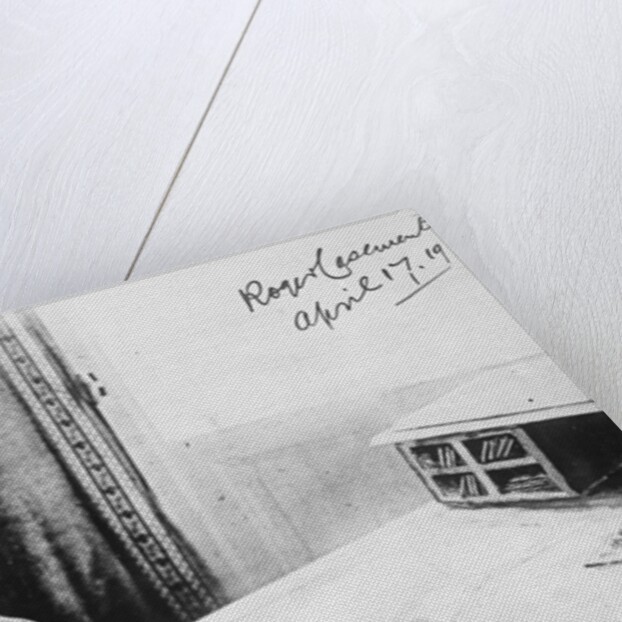 Roger Casement
April 17. 19